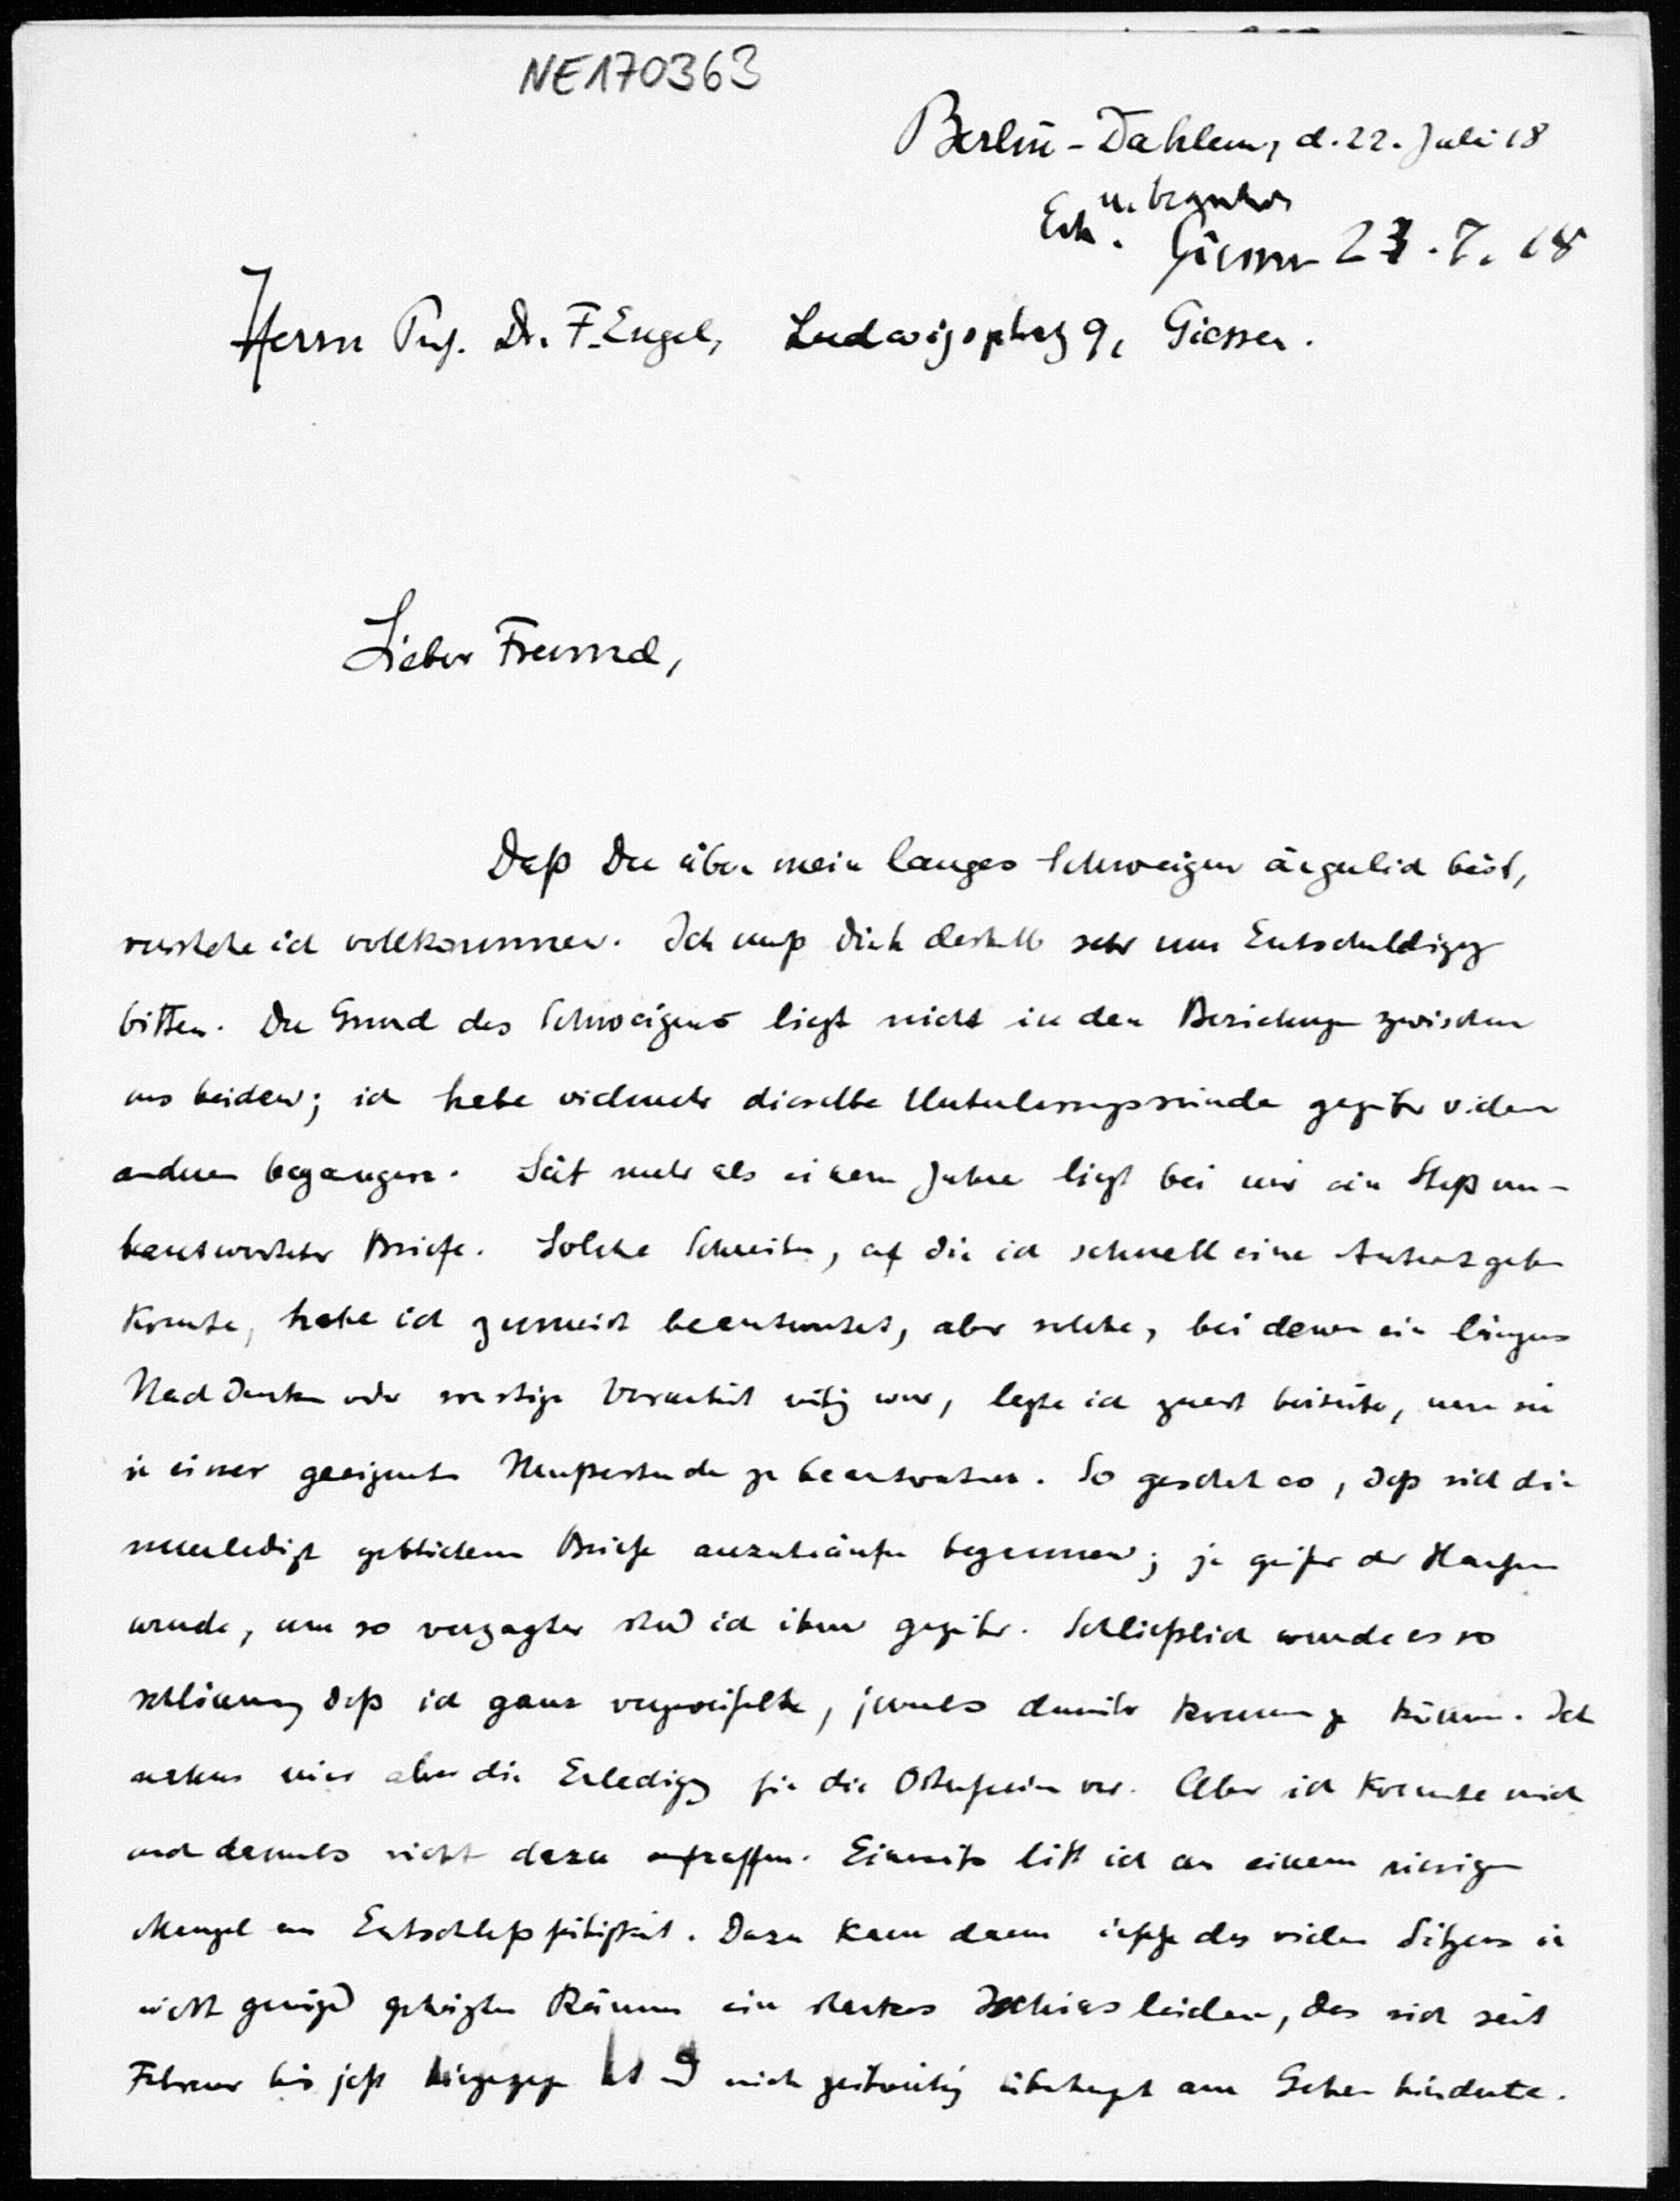 NE170363
Berlin-Dahlem, d. 22. Juli 18
u. beantw.
Erh. Giessen 23. 7. 18
Herrn Prof. Dr. F. Engel, Ludwigsplatz 9, Giessen.
Lieber Freund,
Daß Du über mein langes Schweigen ärgerlich bist,
verstehe ich vollkommen. Ich muß Dich deshalb sehr um Entschuldigung
bitten. Der Grund des Schweigens liegt nicht in den Beziehungen zwischen
uns beiden; ich habe vielmehr dieselbe Unterlassungssünde gegenüber vielen
anderen begangen. Seit mehr als einem Jahre liegt bei mir ein Stoß un-
beantworteter Briefe. Solche Schreiben, auf die ich schnell eine Antwort geben
konnte, habe ich zumeist beantwortet, aber solche, bei denen ein längeres
Nachdenken oder sonstige Vorarbeit nötig war, legte ich zuerst beiseite, um sie
in einer geeigneten Mußestunde zu beantworten. So geschah es, daß sich die
unerledigt gebliebenen Briefe anzuhäufen begannen; je größer der Haufen
wurde, um so verzagter stand ich ihm gegenüber. Schließlich wurde es so
schlimm, daß ich ganz verzweifelte, jemals damit kommen zu können. Ich
nahm mir aber die Erledigung für die Osterferien vor. Aber ich konnte mich
auch damals nicht dazu aufraffen. Einerseits litt ich an einem riesigen
Mangel an Entschlußfähigkeit. Dazu kam dann infolge des vielen Sitzens in
nicht genügend geheizten Räumen ein starkes Ischiasleiden, das sich seit
Februar bis jetzt hingezogen hat und mich zeitweilig überhaupt am Gehen hinderte.